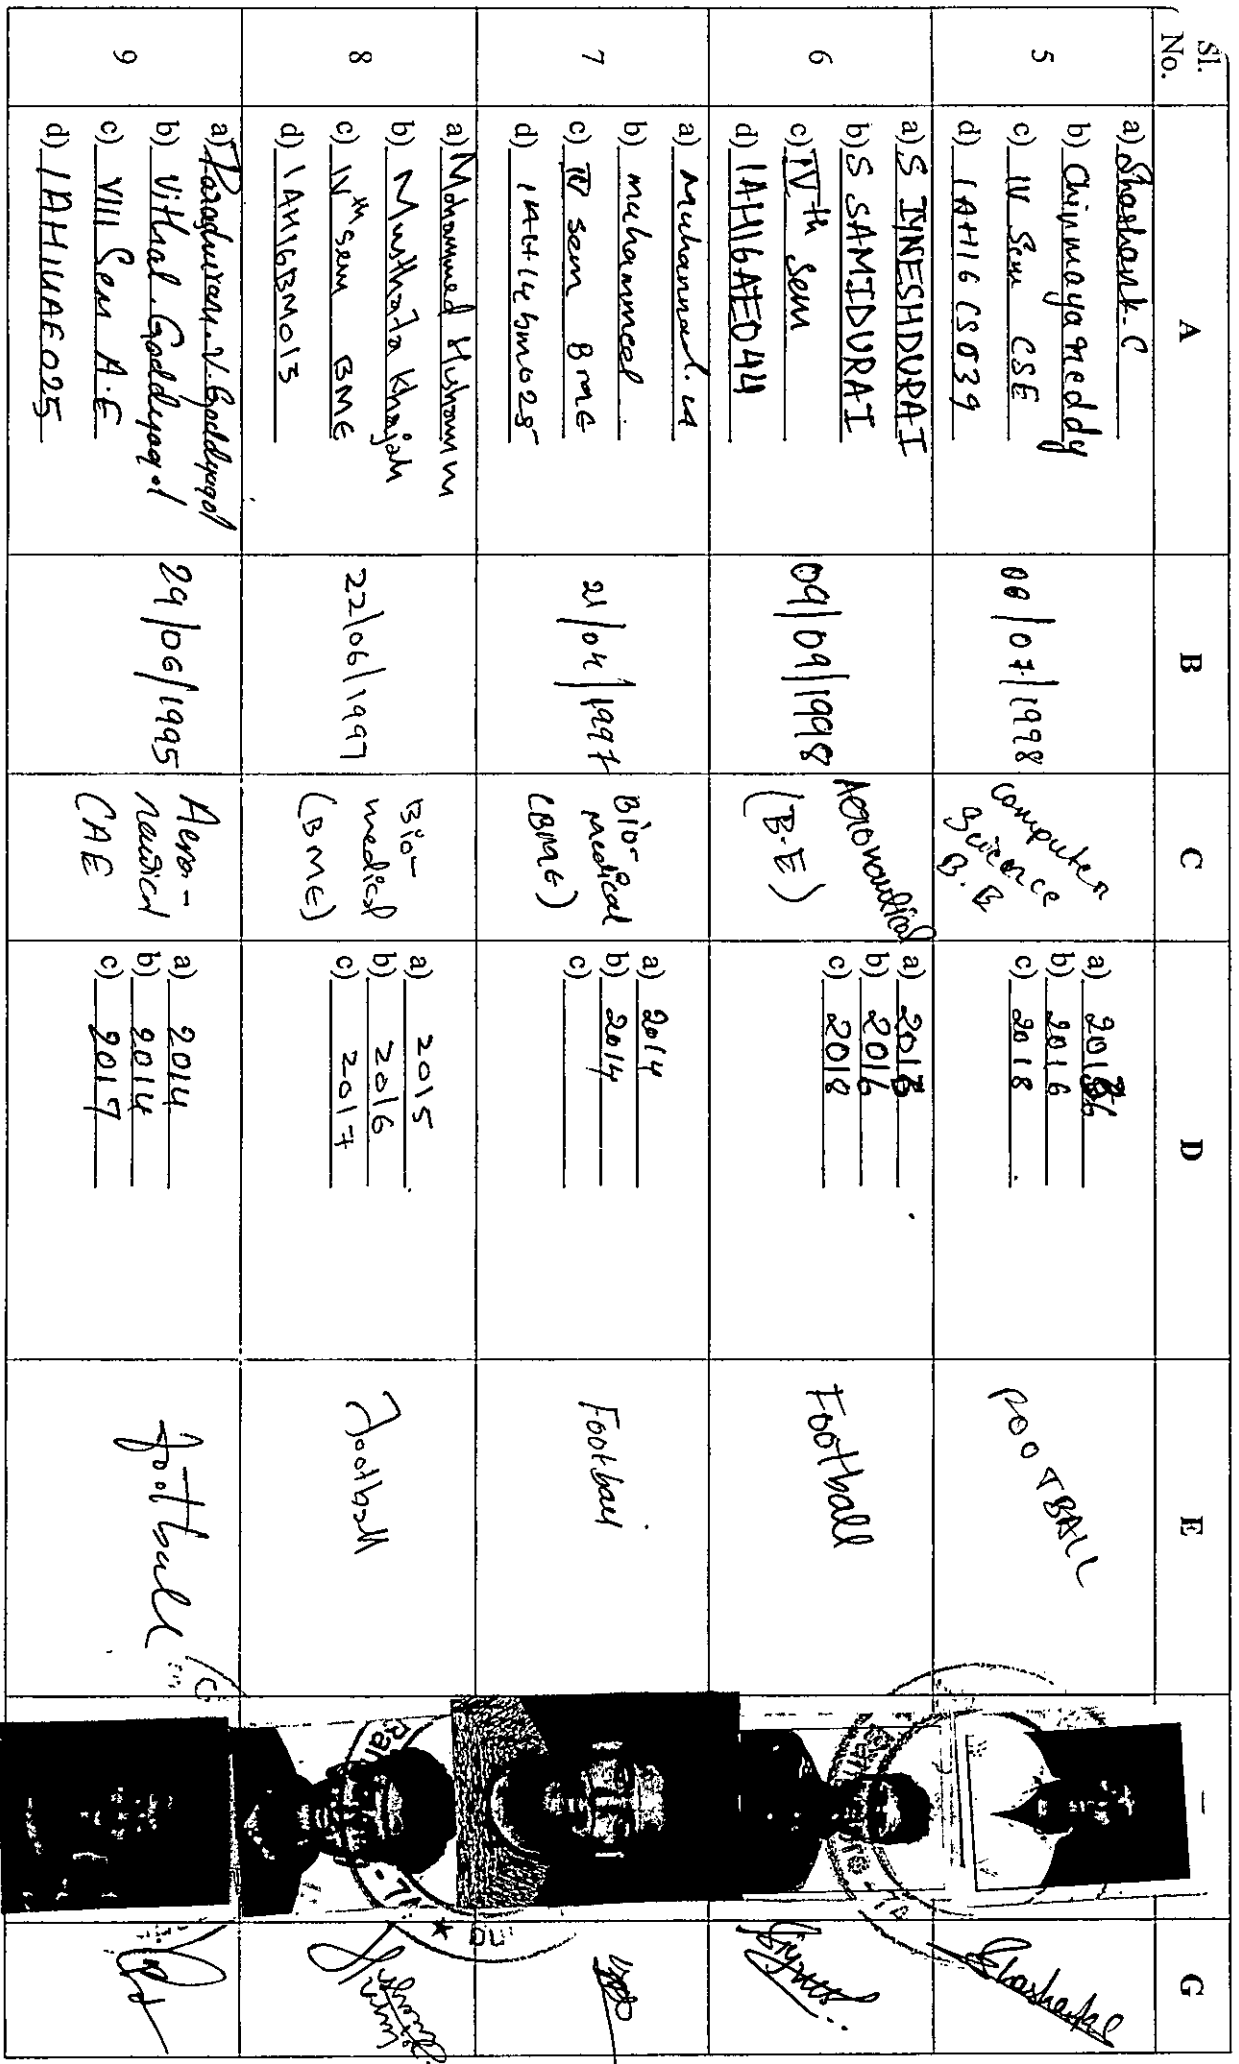 Sl. No. A B C D E G
5
a) Shashank.C
b) Chinmaya Reddy
c) IV Sem CSE
d) 1AH16CS039
00/07/1998
Computer
Science
B.E
a) 2016
b) 2016
c) 2018
FOOTBALL
6
a) S IYNESHDURAI
b) S SAMIDURAI
c) IVth Sem
d) 1AH16AE044
09/09/1998
Aeronautical
(B.E)
a) 2016
b) 2016
c) 2018
Football
7
a) Muhammad.
b) muhammed.
c) IV sem BME
d) 1AH14bm025
21/04/1997
Bio-
Medical
(BME)
a) 2014
b) 2014
c)
Football
8
a) Mohammed
b) Musthafa Khajah
c) IVth sem BME
d) 1AH16BM013
22/06/1997
Bio-
medical
(BME)
a) 2015
b) 2016
c) 2017
Football
9
a) Parashuram.V.Goddyagol
b) Vithal.Goddyagol
c) VIII Sem A.E
d) 1AH14AE025
29/06/1995
Aero-
nautical
(AE
a) 2014
b) 2014
c) 2017
football